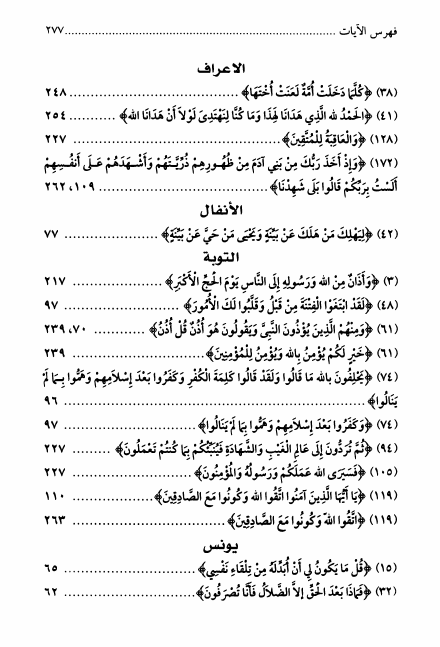 فهرس الآيات ........................................................................ ٢٧٧
الاعراف
(٣٨) ﴿كُلَّمَا دَخَلَتْ أُمَّةٌ لَعَنَتْ أُخْتَهَا﴾ ........................................ ٢٤٨
(٤١) ﴿الحَمْدُ لله الَّذِي هَدَانَا لِهَذَا وَمَا كُنَّا لِنَهْتَدِىَ لَوْلاَ أَنْ هَدَانَا الله﴾ ........... ٢٥٤
(١٢٨) ﴿وَالْعَاقِبَةُ لِلْمُتَّقِينَ﴾ ........................................ ٢٢٧
(١٧٢) ﴿وَإِذْ أَخَذَ رَبُّكَ مِنْ بَنِي آدَمَ مِنْ ظُهُورِهِمْ ذُرِّيَّتَهُمْ وَأَشْهَدَهُمْ عَلَى أَنفُسِهِمْ
أَلَسْتُ بِرَبِّكُمْ قَالُوا بَلَى شَهِدْنَا﴾ ........................................ ١٠٩، ٢٦٢
الأنفال
(٤٢) ﴿لِيَهْلِكَ مَنْ هَلَكَ عَنْ بَيِّنَةٍ وَيَحْيَى مَنْ حَيَّ عَنْ بَيِّنَةٍ﴾ ...................... ٧٧
التوبة
(٣) ﴿وَأَذَانٌ مِنَ الله وَرَسُولِهِ إِلَى النَّاسِ يَوْمَ الْحَجِّ الْأَكْبَرِ﴾ ...................... ٢١٧
(٤٨) ﴿لَقَدْ ابْتَغَوُا الْفِتْنَةَ مِنْ قَبْلُ وَقَلَّبُوا لَكَ الْأُمُورَ﴾ ...................... ٩٧
(٦١) ﴿وَمِنْهُمُ الَّذِينَ يُؤْذُونَ النَّبِىَّ وَيَقُولُونَ هُوَ أُذُنٌ قُلْ أُذُنُ﴾ ............ ٧٠، ٢٣٩
(٦١) ﴿خَيْرٍ لَكُمْ يُؤْمِنُ بِالله وَيُؤْمِنُ لِلْمُؤْمِنِينَ﴾ ................................ ٢٣٩
(٧٤) ﴿يَحْلِفُونَ بِالله مَا قَالُوا وَلَقَدْ قَالُوا كَلِمَةَ الْكُفْرِ وَكَفَرُوا بَعْدَ إِسْلَامِهِمْ وَهَمُّوا بِمَا لَمْ
يَنَالُوا﴾ ........................................................................ ٩٦
(٧٤) ﴿وَكَفَرُوا بَعْدَ إِسْلَامِهِمْ وَهَمُّوا بِمَا لَمْ يَنَالُوا﴾ ................................ ٩٧
(٩٤) ﴿ثُمَّ تُرَدُّونَ إِلَى عَالِمِ الْغَيْبِ وَالشَّهَادَةِ فَيُنَبِّئُكُمْ بِمَا كُنْتُمْ تَعْمَلُونَ﴾ ......... ٢٢٧
(١٠٥) ﴿فَسَيَرَى الله عَمَلَكُمْ وَرَسُولُهُ وَالْمُؤْمِنُونَ﴾ ............................ ٢٢٧
(١١٩) ﴿يَا أَيُّهَا الَّذِينَ آمَنُوا اتَّقُوا الله وَكُونُوا مَعَ الصَّادِقِينَ﴾ .................... ١١٠
(١١٩) ﴿اتَّقُوا اللهَ وَكُونُوا مَعَ الصَّادِقِينَ﴾ ................................ ٢٦٣
يونس
(١٥) ﴿قُلْ مَا يَكُونُ لِي أَنْ أُبَدِّلَهُ مِنْ تِلْقَاءِ نَفْسِي﴾ ............................ ٦٥
(٣٢) ﴿فَمَاذَا بَعْدَ الْحَقِّ إِلاَّ الضَّلاَلُ فَأَنَّا تُصْرَفُونَ﴾ ............................ ٦٢